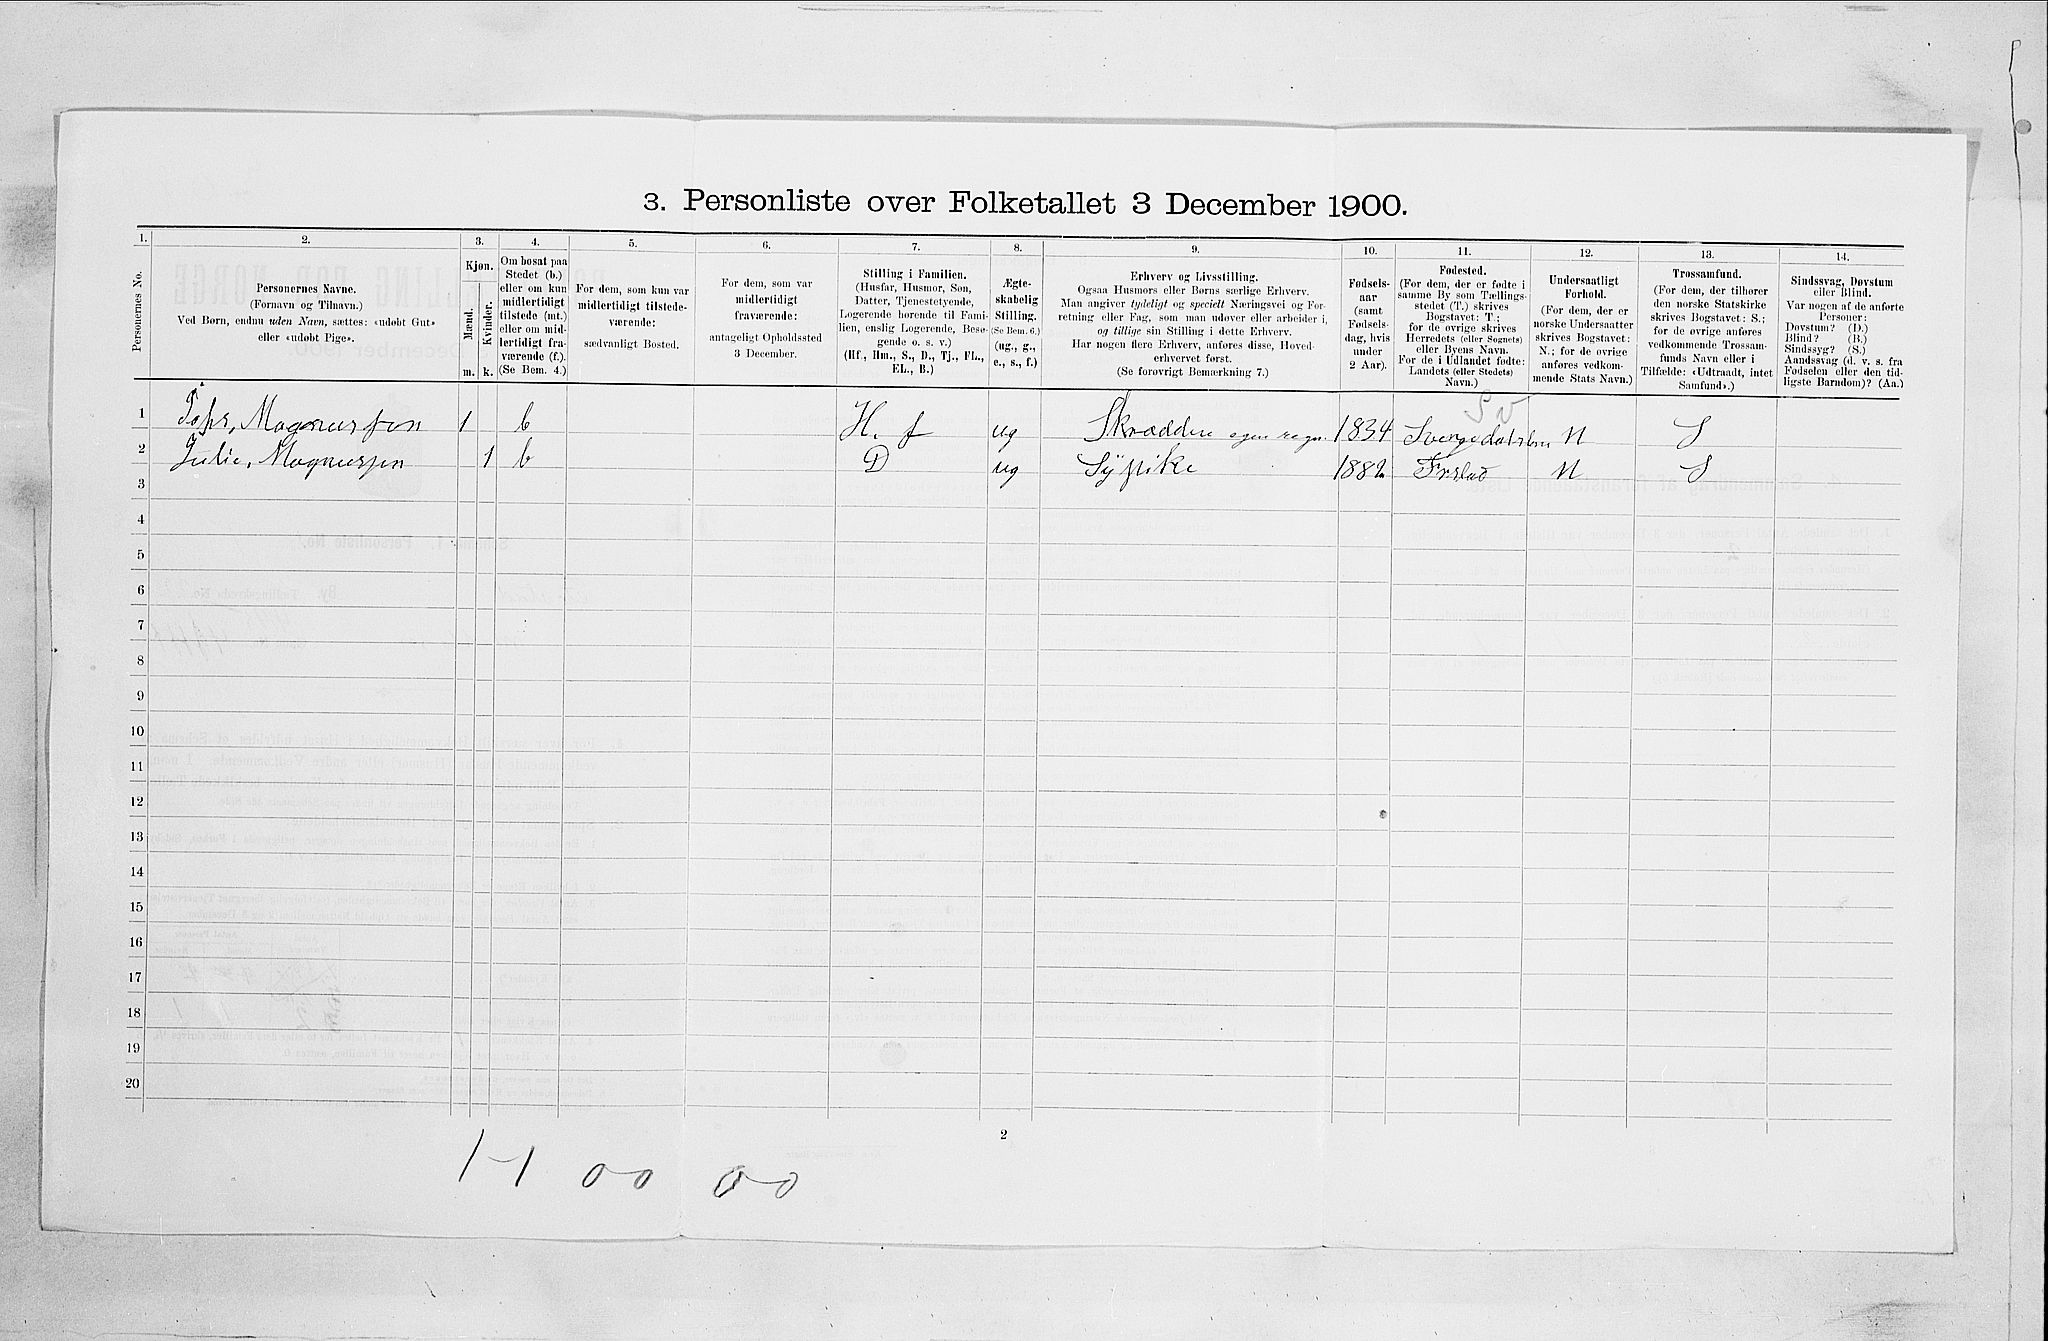 3. Personliste over Folketallet 3 December 1900.
1. 2. 3. 4. 5. 6. 7. 8. 9. 10. 11. 12. 13. 14.
Personernes No.
Personernes Navne.
(Fornavn og Tilnavn.)
Ved Børn, endnu uden Navn, sættes: «udøbt Gut»
eller «udøbt Pige».
Kjøn.
Mænd.
Kvinder.
m. k.
Om bosat paa
Stedet (b.)
eller om kun
midlertidigt
tilstede (mt.)
eller om mid-
lertidigt fra-
værende (f.).
(Se Bem. 4.)
For dem, som kun var
midlertidigt tilstede-
værende:
sædvanligt Bosted.
For dem, som var
midlertidigt
fraværende:
antageligt Opholdssted
3 December.
Stilling i Familien.
(Husfar, Husmor, Søn,
Datter, Tjenestetyende,
Logerende hørende til Fami-
lien, enslig Logerende, Besø-
gende o. s. v.)
(Hf., Hm., S., D., Tj., FL.,
EL., B.)
Ægte-
skabelig
Stilling.
(Se Bem. 6.)
(ug., g.,
e., s., f.)
Erhverv og Livsstilling.
Ogsaa Husmors eller Børns særlige Erhverv.
Man angiver tydeligt og specielt Næringsvei og For-
retning eller Fag, som man udøver eller arbeider i,
og tillige sin Stilling i dette Erhverv.
Har nogen flere Erhverv, anføres disse, Hoved-
erhvervet først.
(Se forøvrigt Bemærkning 7.)
Fødsels-
aar
(samt
Fødsels-
dag, hvis
under
2 Aar).
Fødested.
(For dem, der er fødte i
samme By som Tællings-
stedet (T.) skrives
Bogstavet: T.;
for de øvrige skrives
Herredets (eller Sognets)
eller Byens Navn.
For de i Udlandet fødte:
Landets (eller Stedets)
Navn.)
Undersaatligt
Forhold.
(For dem, der er
norske Undersaatter
skrives Bogstavet:
N.; for de øvrige
anføres vedkom-
mende Stats Navn.)
Trossamfund.
(For dem, der tilhører
den norske Statskirke
skrives Bogstavet: S.;
for de øvrige anføres
vedkommende Trossam-
funds Navn eller i
Tilfælde: «Udtraadt, intet
Samfund».)
Sindssvag, Døvstum
eller Blind.
Var nogen af de anførte
Personer:
Døvstum? (D.)
Blind? (B.)
Sindssyg? (S.)
Aandssvag (d. v. s. fra
Fødselen eller den tid-
ligste Barndom)? (Aa.)
1 Magnussen 1 b H. f ug Skræddere egen 1834 N S
2 Julie, Magnussen 1 b D ug Sÿpike 1882 Frstad N S
3
4
5
6
7
8
9
10
11
12
13
14
15
16
17
18
19
20
2
1-1 00 00